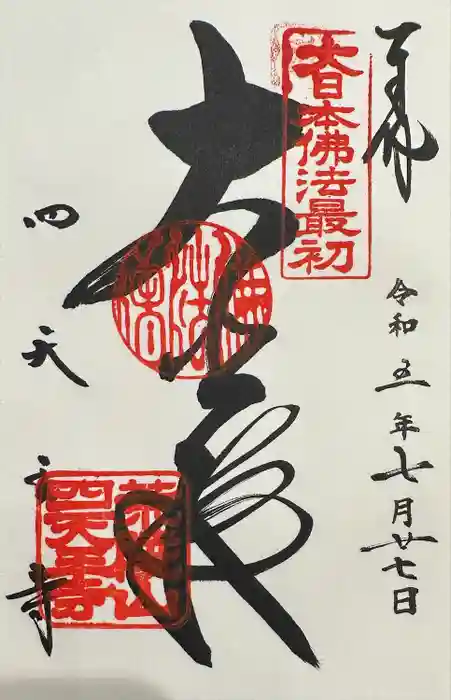 奉拝
大日本佛法最初
令和五年七月廿七日
大悲殿
四天王寺
荒陵山
四天王寺